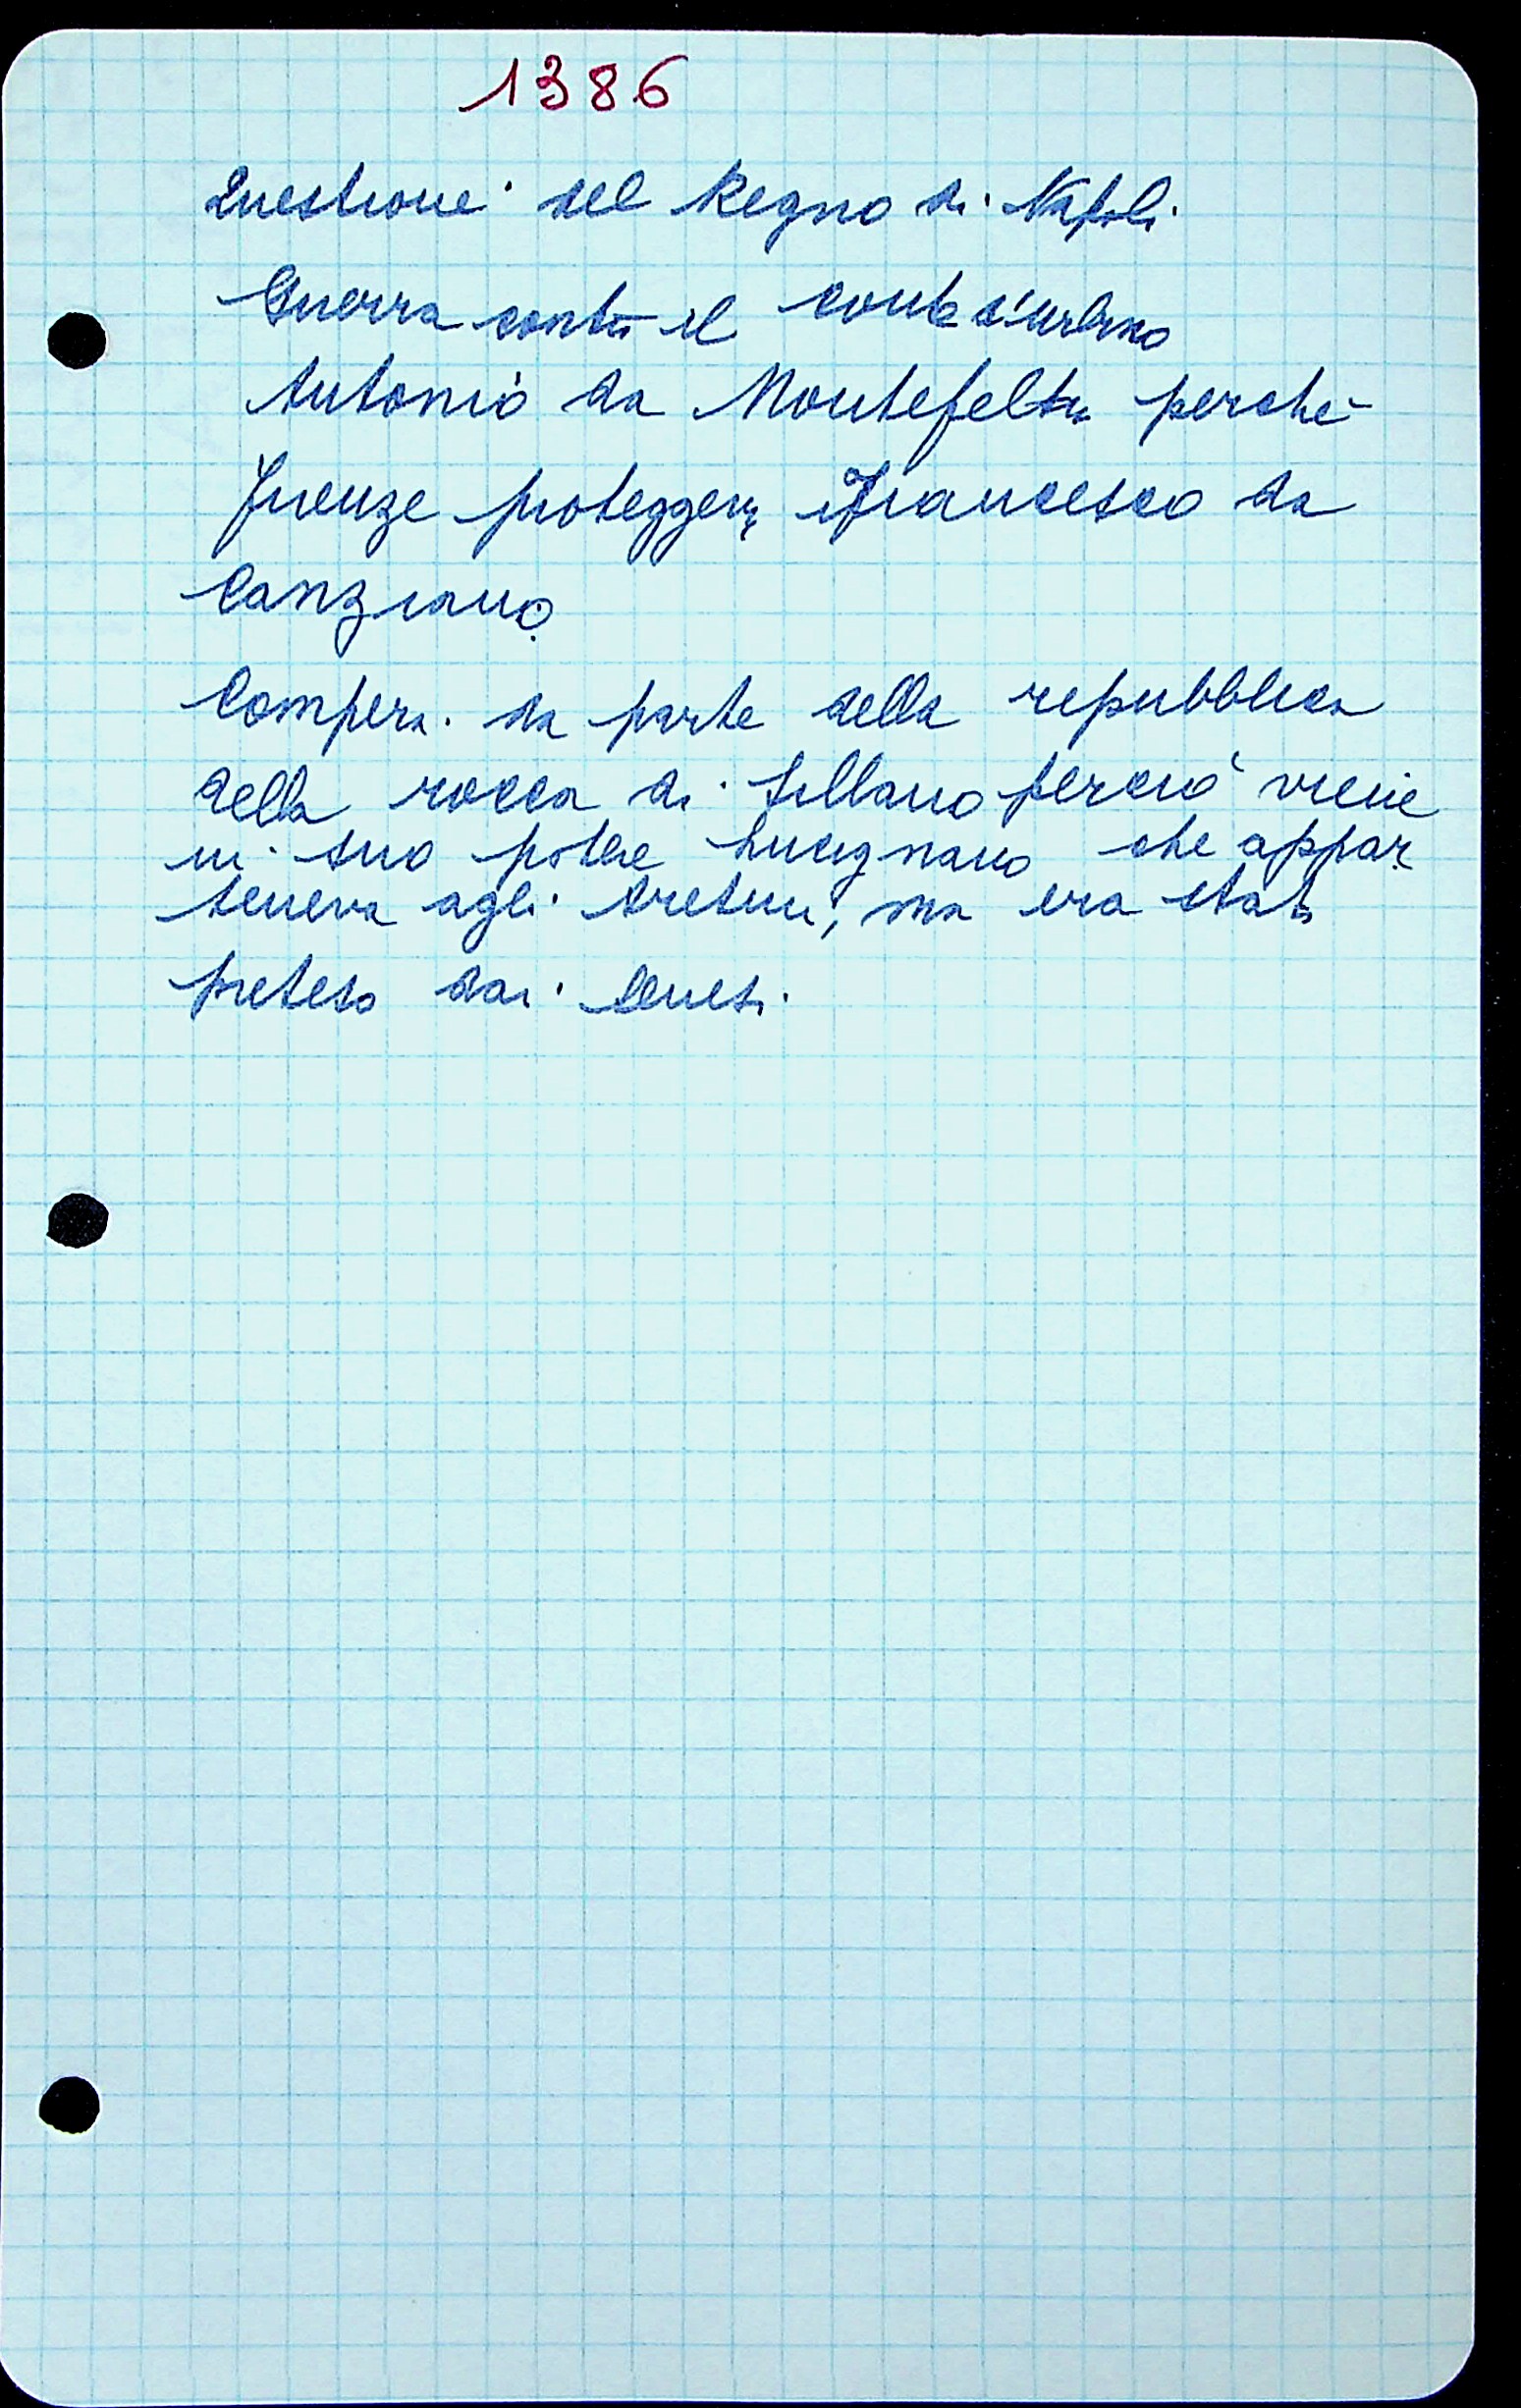 1386
Questione del Regno di Napoli
Guerra contro il conte d'Urbino
Antonio da Montefeltro perché
Firenze proteggeva Francesco da
Canziano
Compera da parte della repubblica
della rocca di Lillano perciò viene
in suo potere Lucignano che appar
teneva agli Aretini, ma era stato
preteso dai Senesi